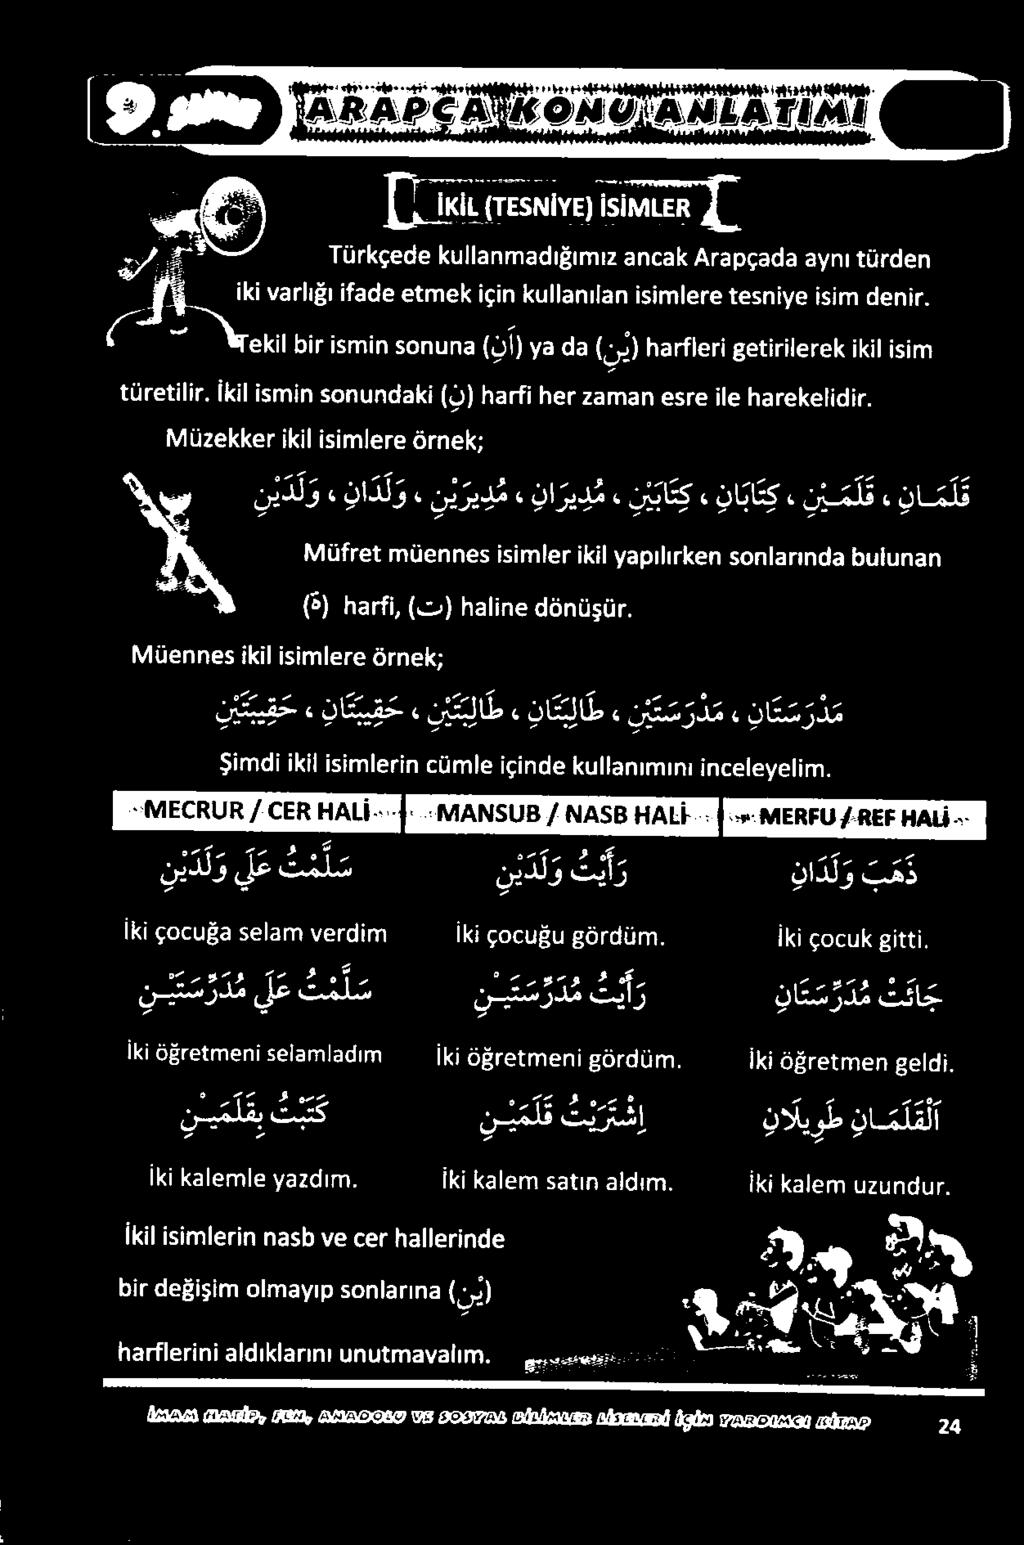 9. SINIF
ARAPÇA KONU ANLATIMI
İKİL (TESNİYE) İSİMLER
Türkçede kullanmadığımız ancak Arapçada aynı türden
iki varlığı ifade etmek için kullanılan isimlere tesniye isim denir.
Tekil bir ismin sonuna (اَنِ) ya da (يْنِ) harfleri getirilerek ikil isim
türetilir. İkil ismin sonundaki (نِ) harfi her zaman esre ile harekelidir.
Müzekker ikil isimlere örnek;
قَلَمَـانِ ، قَلَمَـيْنِ ، كِتَابَانِ ، كِتَابَيْنِ ، مُدِيرَانِ ، مُدِيرَيْنِ ، وَلَدَانِ ، وَلَدَيْنِ
Müfret müennes isimler ikil yapılırken sonlarında bulunan
(ة) harfi, (ت) haline dönüşür.
Müennes ikil isimlere örnek;
مَدْرَسَتَانِ ، مَدْرَسَتَيْنِ ، طَالِبَتَانِ ، طَالِبَتَيْنِ ، حَقِيبَتَانِ ، حَقِيبَتَيْنِ
Şimdi ikil isimlerin cümle içinde kullanımını inceleyelim.
MECRUR / CER HALİ MANSUB / NASB HALİ MERFU / REF HALİ
سَلَّمْتُ عَلَي وَلَدَيْنِ رَأَيْتُ وَلَدَيْنِ ذَهَبَ وَلَدَانِ
İki çocuğa selam verdim İki çocuğu gördüm. İki çocuk gitti.
سَلَّمْتُ عَلَي مُدَرِّسَتَيْـنِ رَأَيْتُ مُدَرِّسَتَيْـنِ جَائَتْ مُدَرِّسَتَانِ
İki öğretmeni selamladım İki öğretmeni gördüm. İki öğretmen geldi.
كَتَبْتُ بِقَلَمَيْـنِ اِشْتَرَيْتُ قَلَمَيْـنِ اَلْقَلَمَـانِ طَوِيلَانِ
İki kalemle yazdım. İki kalem satın aldım. İki kalem uzundur.
İkil isimlerin nasb ve cer hallerinde
bir değişim olmayıp sonlarına (يْنِ)
harflerini aldıklarını unutmayalım.
İMAM HATİP, FEN, ANADOLU VE SOSYAL BİLİMLER LİSELERİ İÇİN YARDIMCI KİTAP 24